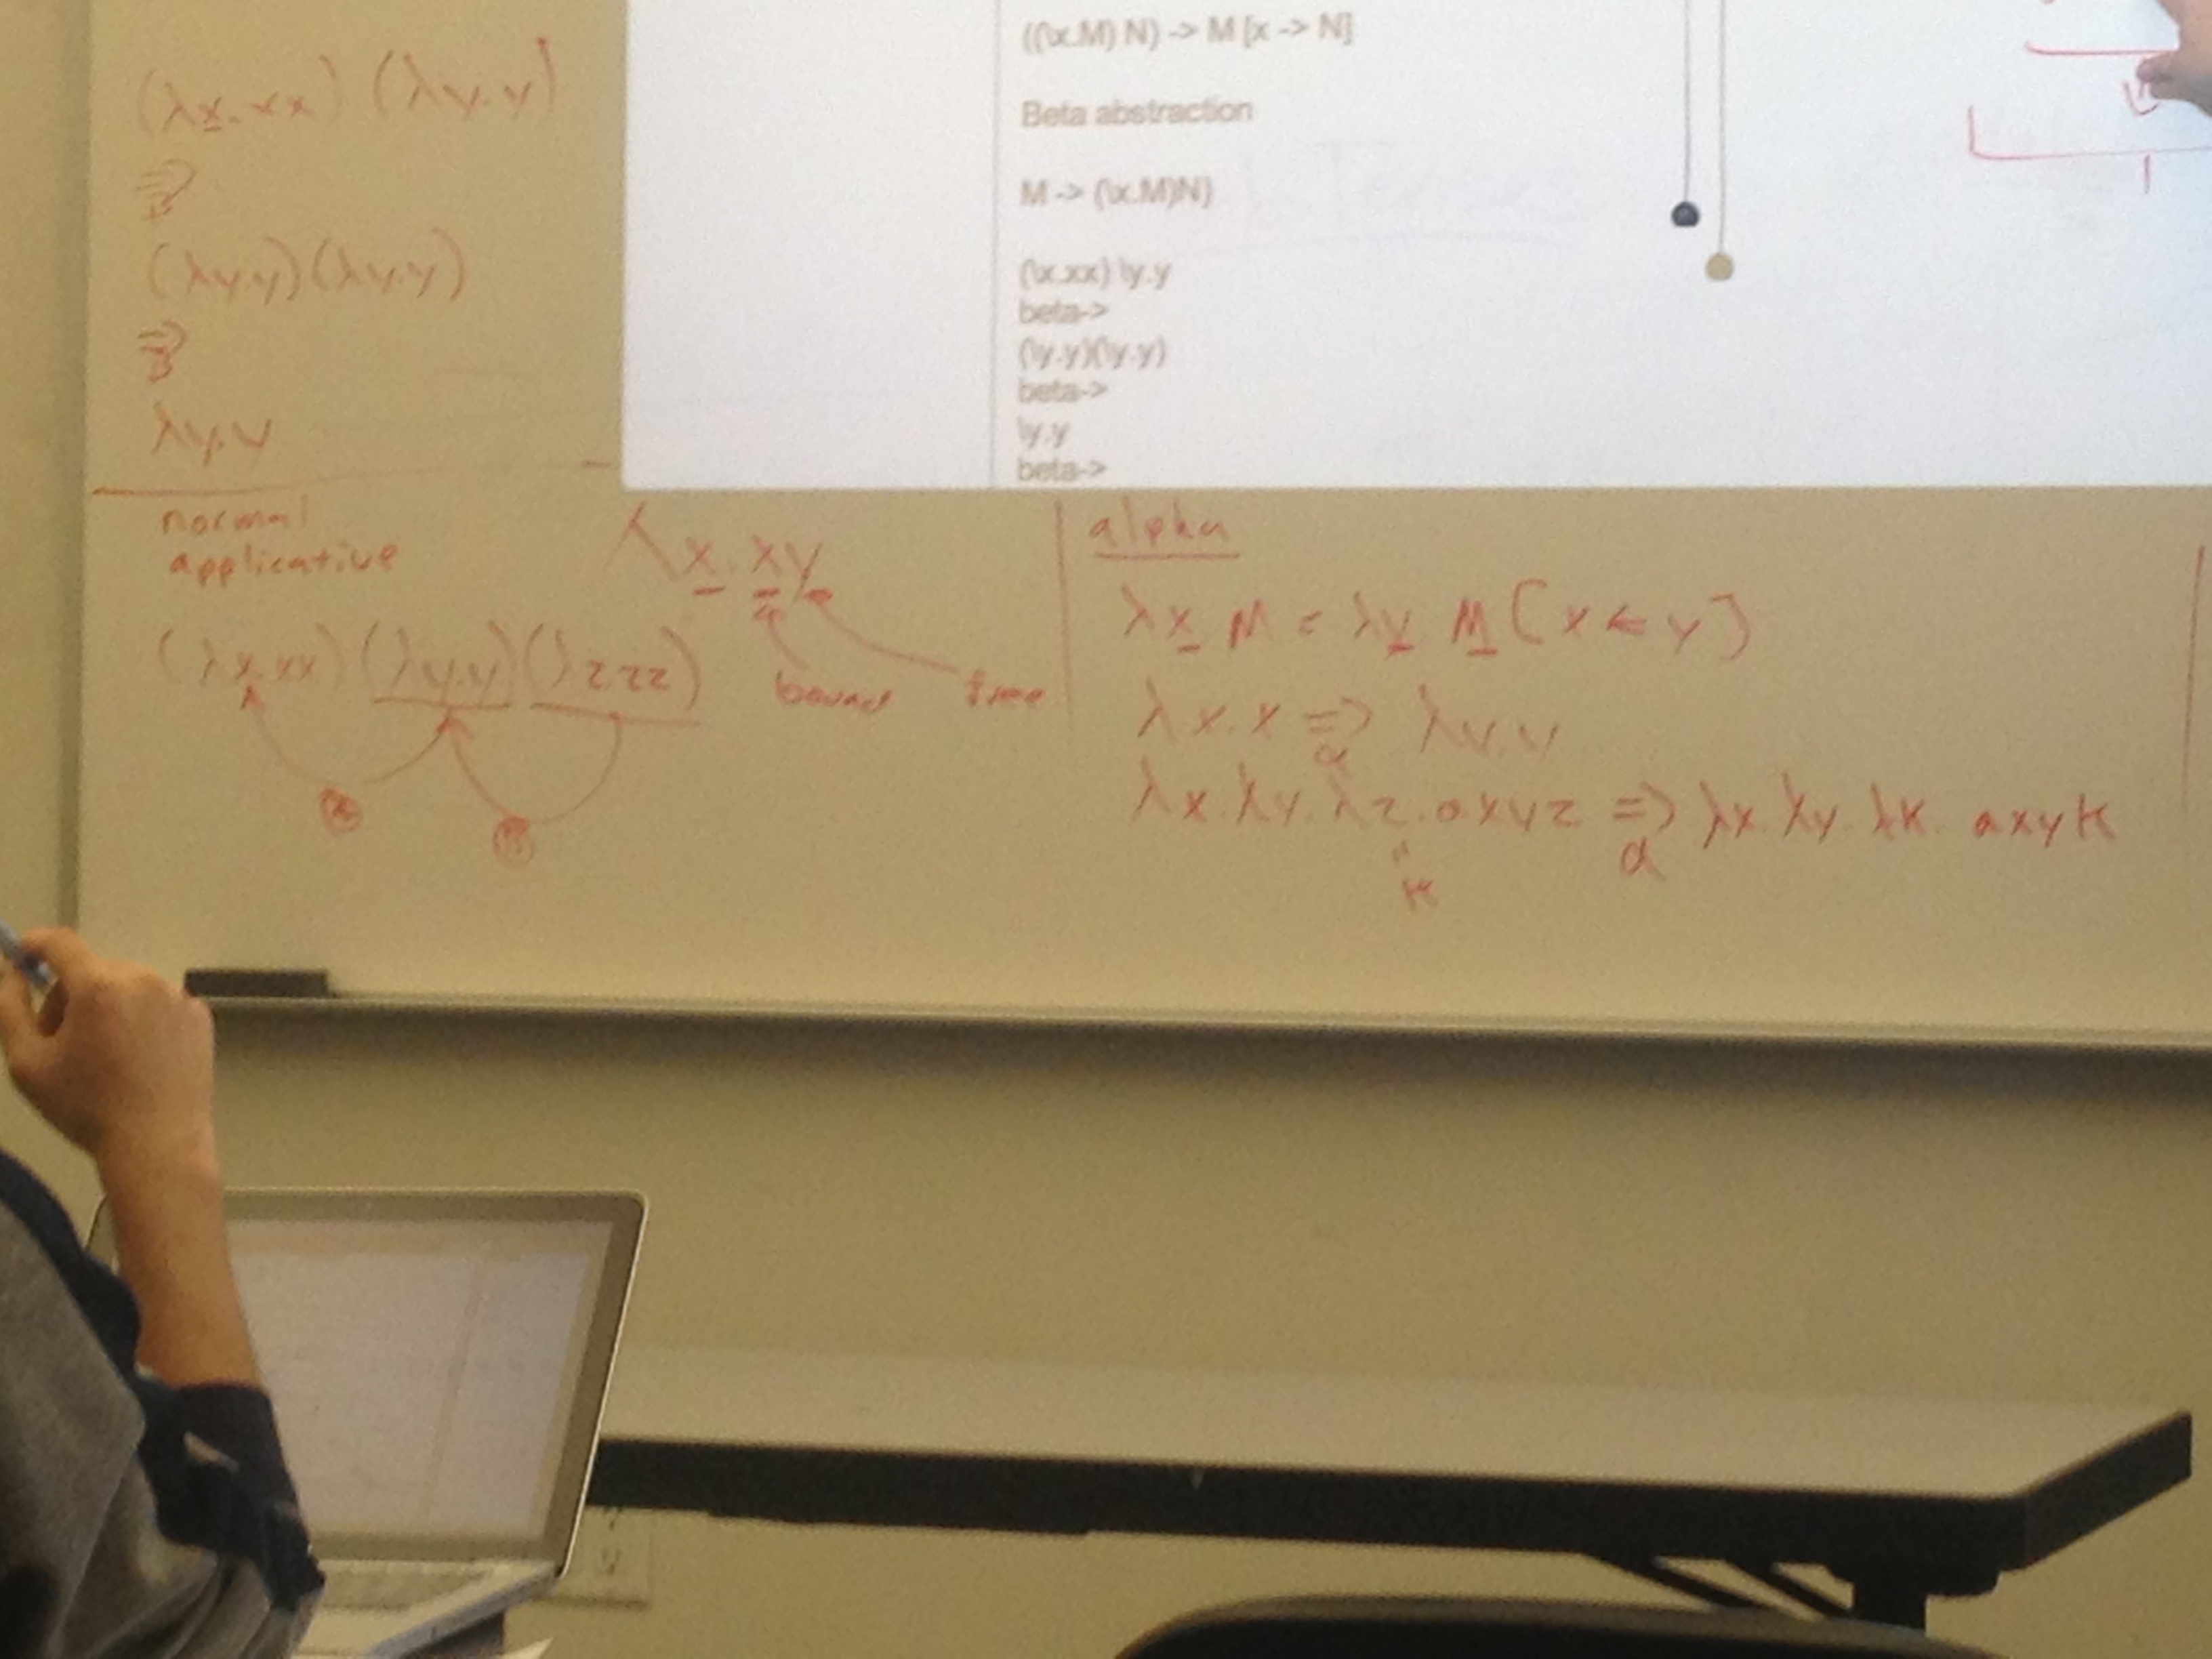 (λx.xx) (λy.y)
⇒β
(λy.y)(λy.y)
⇒β
λy.y
((\x.M) N) -> M [x -> N]
Beta abstraction
M -> (\x.M)N)
(\x.xx) \y.y
beta->
(\y.y)(\y.y)
beta->
\y.y
beta->
normal
applicative
(λx.xx)(λy.y)(λzzz)
λx.xy
bound free
alpha
λx M = λy M[x ← y]
λx.x ⇒α λy.y
λx.λy.λz.axyz ⇒α λx.λy.λk. axyk
k